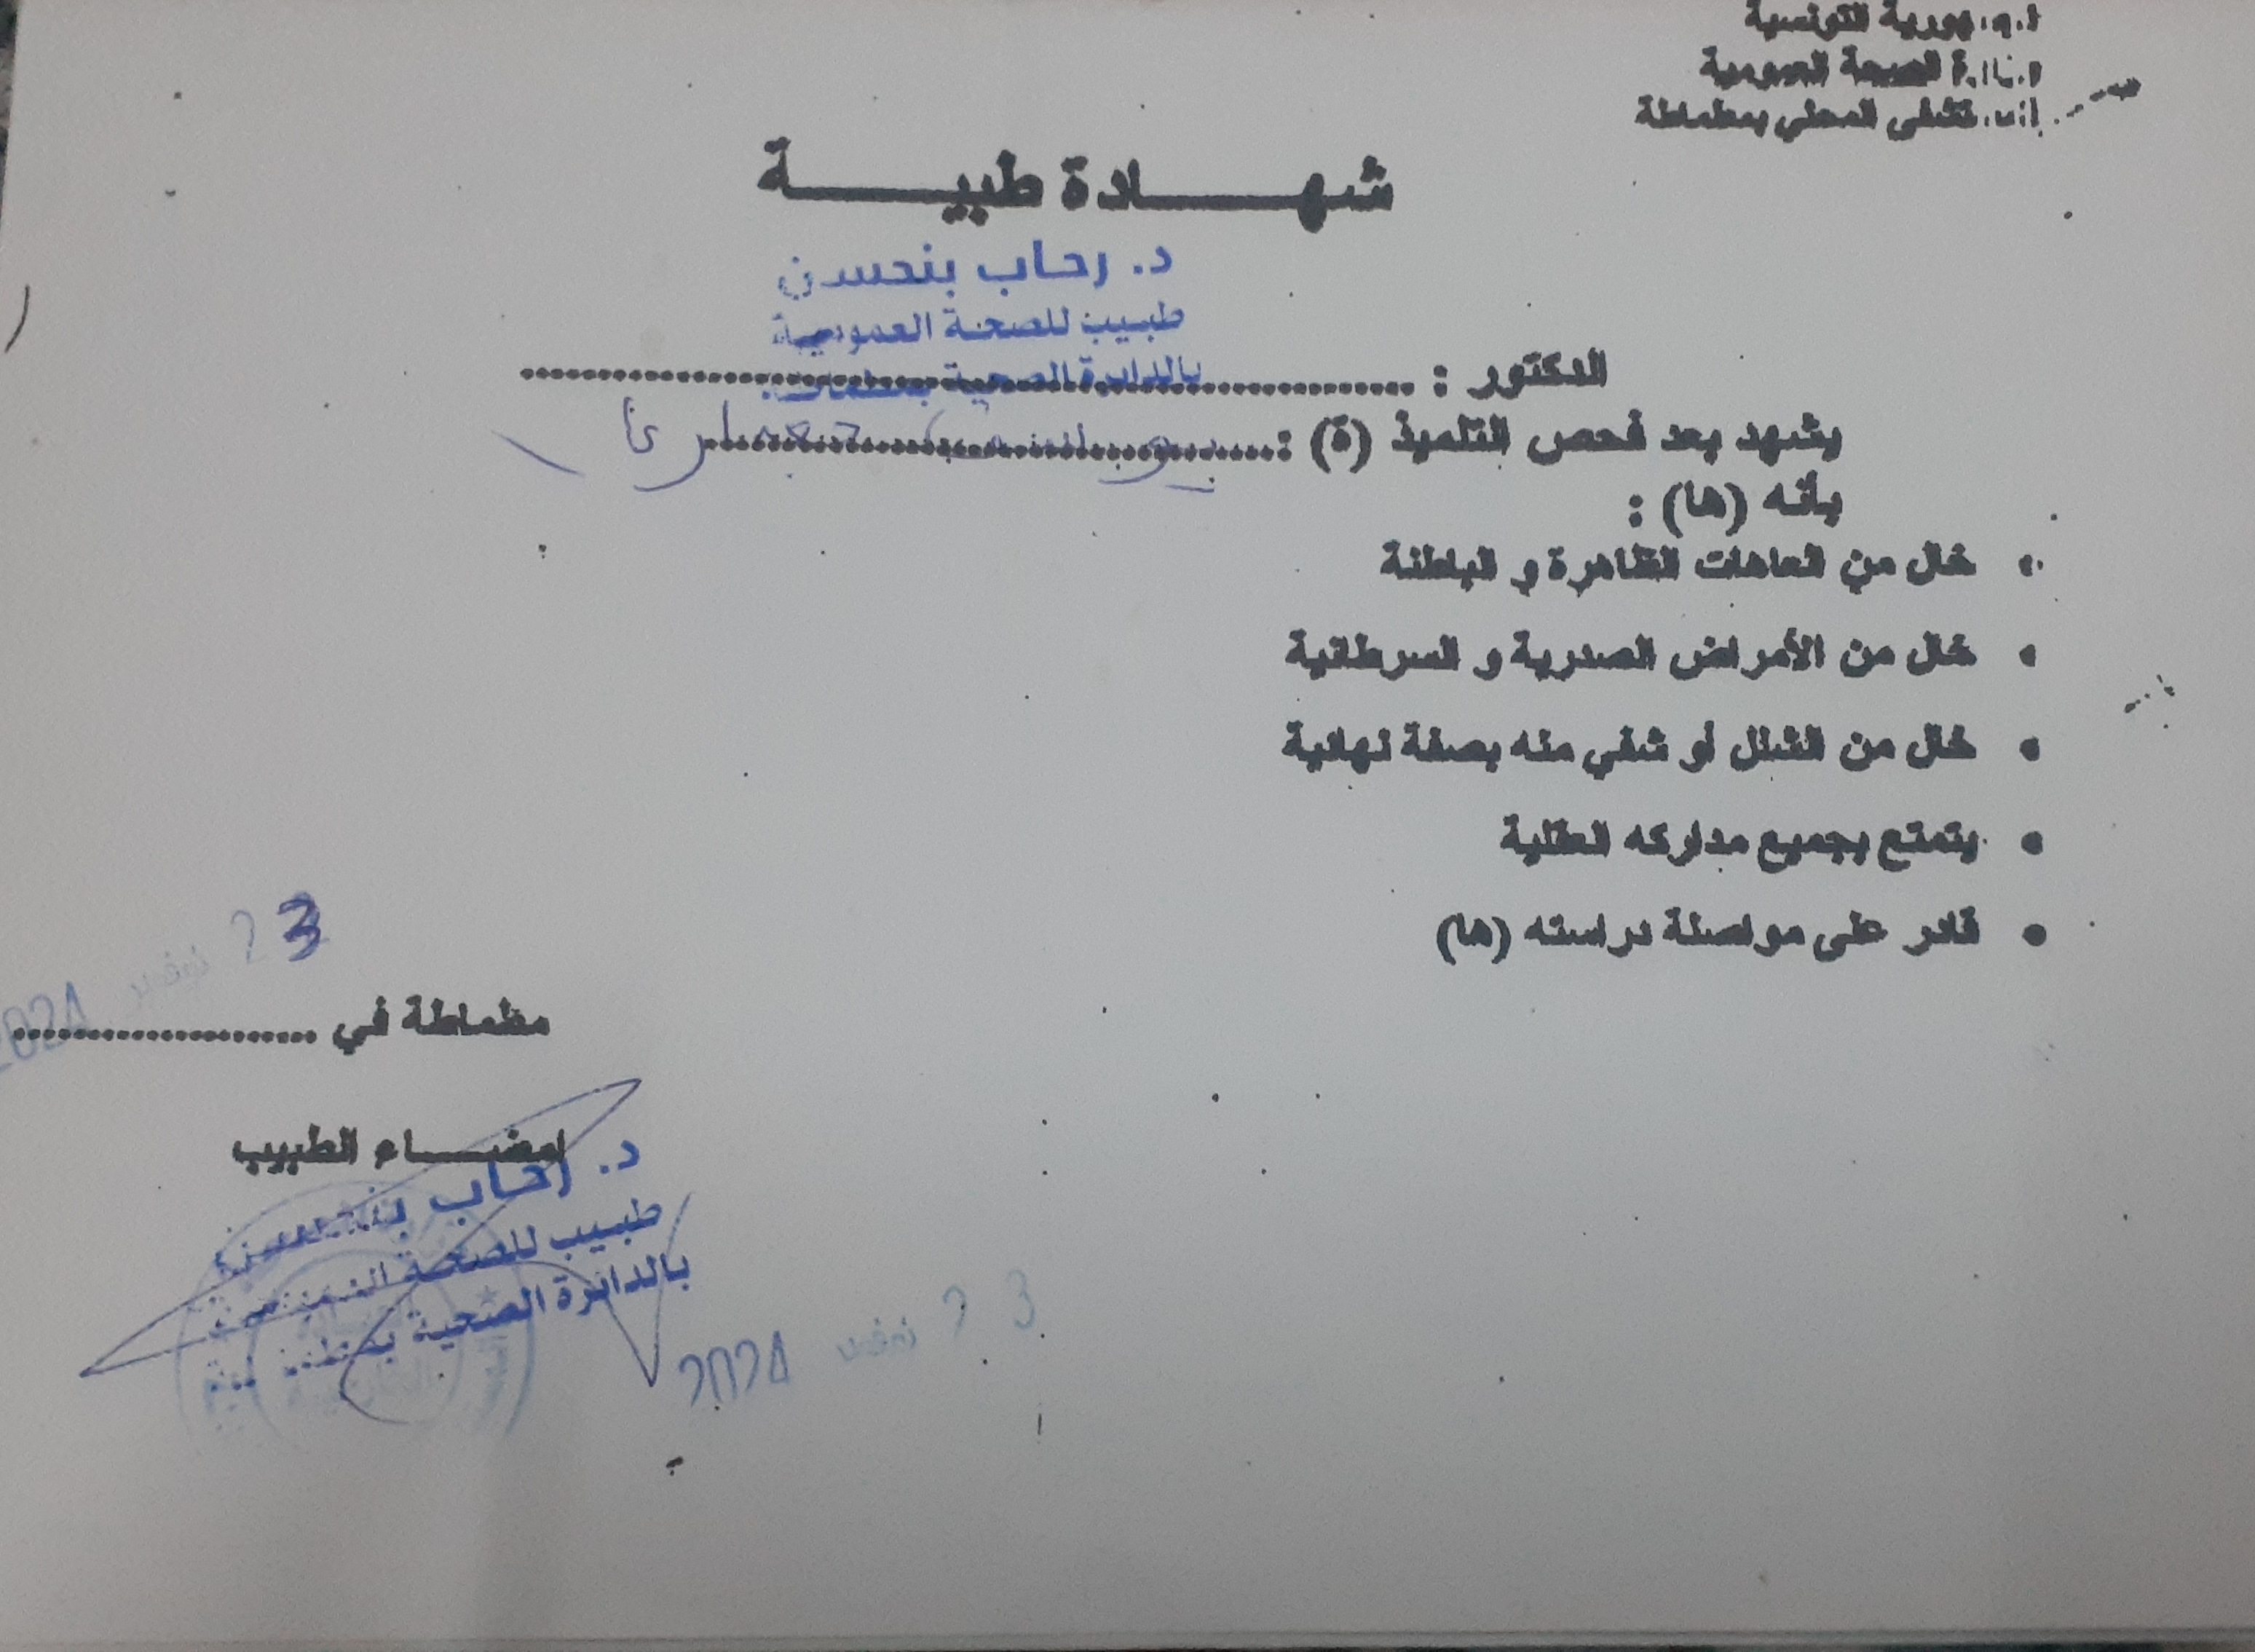 الجمهورية التونسية
وزارة الصحة العمومية
المستشفى المحلي بمطماطة
شهادة طبية
د. رحاب بنحسن
طبيب للصحة العمومية
بالدائرة الصحية بمطماطة
الدكتور :
يشهد بعد فحص التلميذ (ة) :
بأنه (ها) :
• خال من العاهات الظاهرة و الباطنة
• خال من الأمراض الصدرية و السرطانية
• خال من الشلل أو شفي منه بصفة نهائية
• يتمتع بجميع مداركه العقلية
• قادر على مواصلة دراسته (ها)
23 نوفمبر 2024
مطماطة في
إمضاء الطبيب
د. رحاب بنحسن
طبيب للصحة العمومية
بالدائرة الصحية بمطماطة
23 نوفمبر 2024